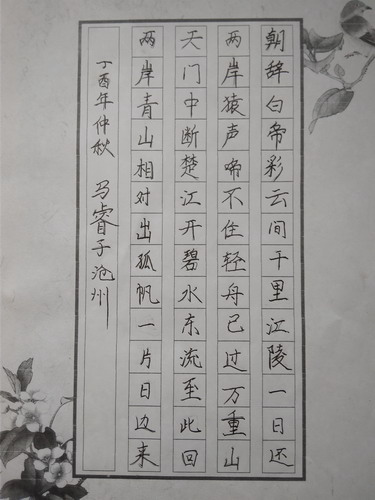 朝辞白帝彩云间千里江陵一日还
两岸猿声啼不住轻舟已过万重山
天门中断楚江开碧水东流至此回
两岸青山相对出孤帆一片日边来
丁酉年仲秋 马睿子沧州